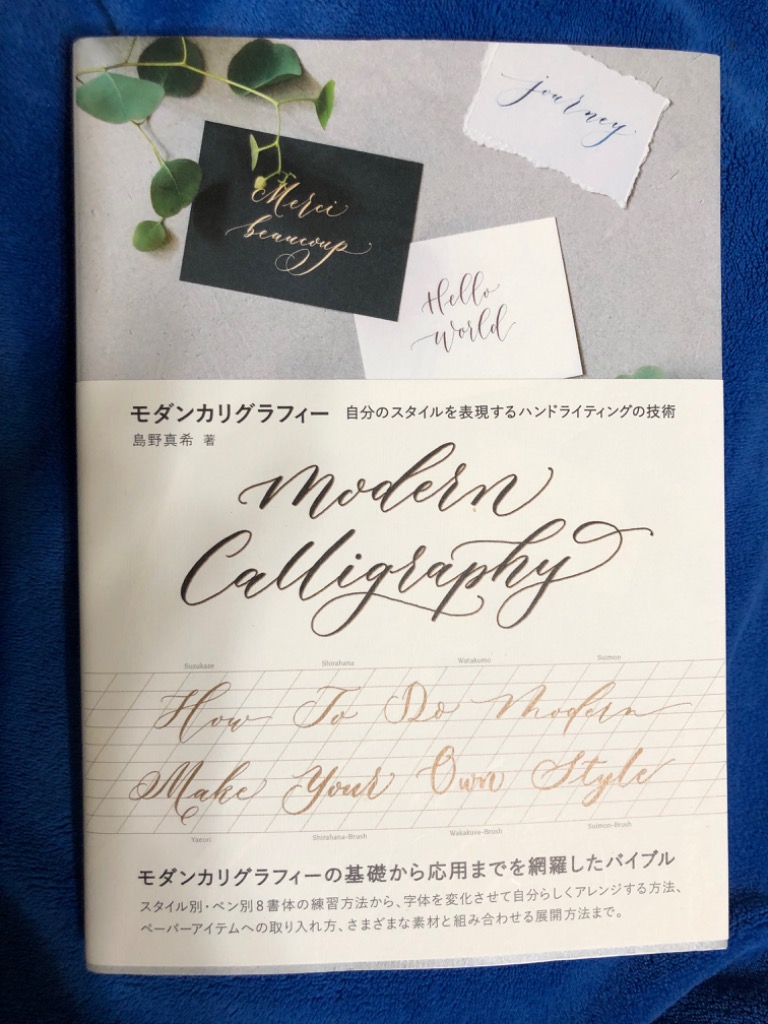 journey
Merci
beaucoup
Hello
world
モダンカリグラフィー 自分のスタイルを表現するハンドライティングの技術
島野真希 著
Modern
Calligraphy
Suzukaze Shirahana Watakumo Suimon
How To Do Modern
Make Your Own Style
Yaeuri Shirahana-Brush Wakakusa-Brush Suimon-Brush
モダンカリグラフィーの基礎から応用までを網羅したバイブル
スタイル別・ペン別8書体の練習方法から、字体を変化させて自分らしくアレンジする方法、
ペーパーアイテムへの取り入れ方、さまざまな素材と組み合わせる展開方法まで。